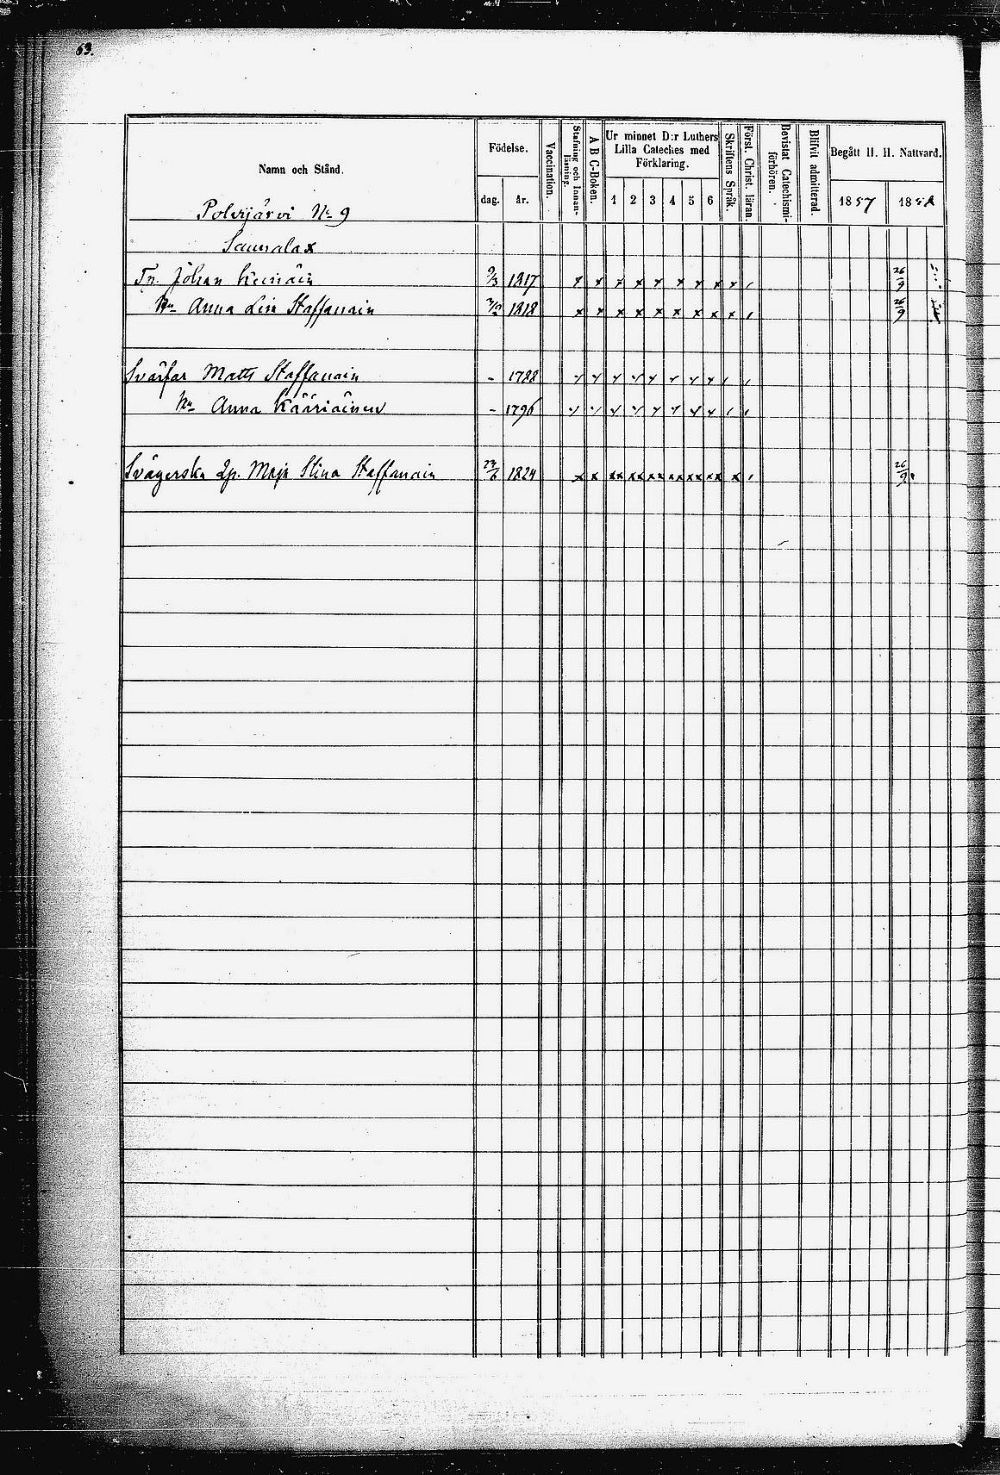 63.
Namn och Stånd.
Födelse.
dag. år.
Vaccination.
Stafning och Innanläsning.
A B C-Boken.
Ur minnet D:r Luthers
Lilla Cateches med
Förklaring.
1 2 3 4 5 6
Skriftens Språk.
Först. Christ. läran.
Bevistat Catechismiförhören.
Blifvit admitterad.
Begått H. H. Nattvard.
1857 1858
Polvijärvi No 9
Saunalax
Johan 9/3 1817 x x x x x x x x x x 26/9
Anna Lisa Staffanain 1818 x x x x x x x x x x 26/9
Svärfar Matts Staffanain - 1788
Anna Kääriäinen - 1796
Svägerska Maja Stina Staffanain 1824 x x xx xx xx xx xx xx x 26/9